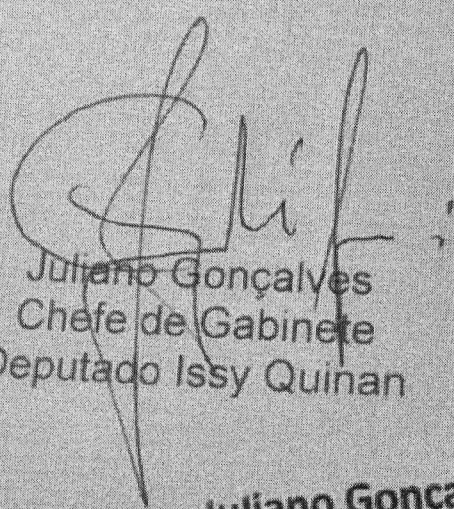 Juliano Gonçalves
Chefe de Gabinete
Deputado Issy Quinan
Juliano